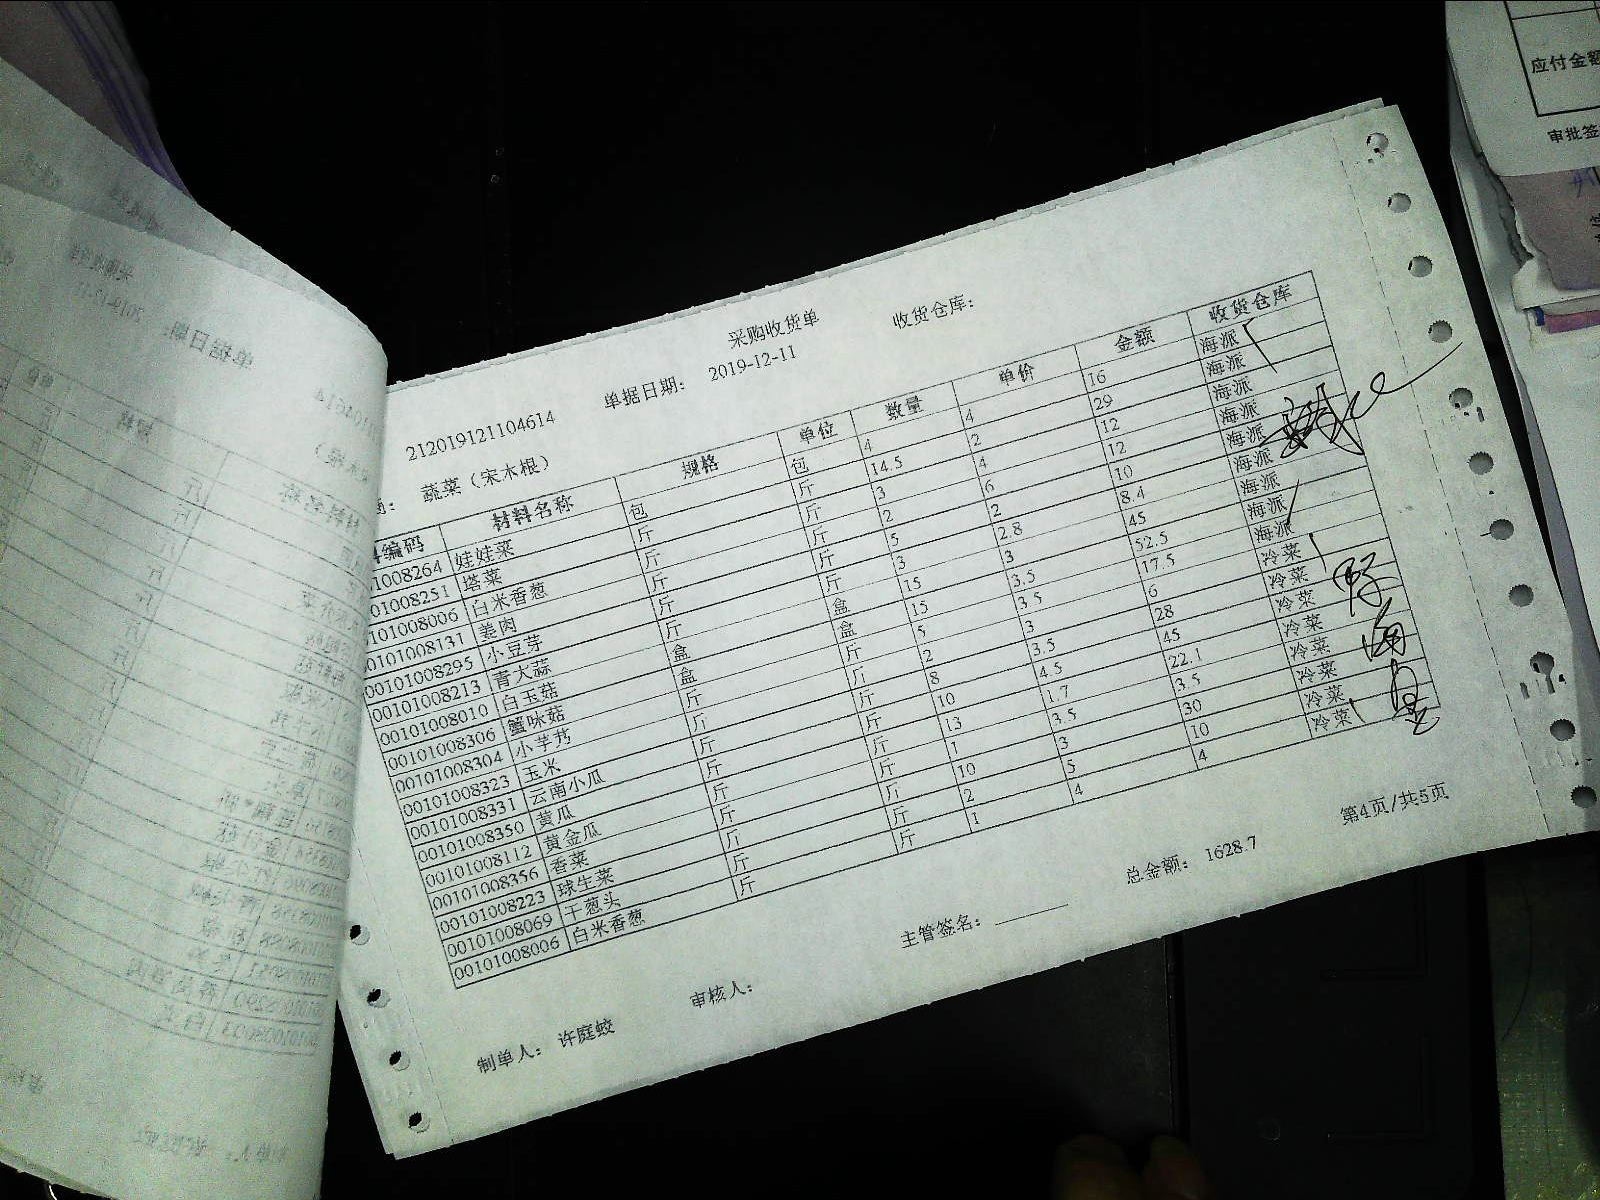 采购收货单
收货仓库：
212019121104614 单据日期： 2019-12-11
商： 蔬菜（宋木根）
编码 材料名称 规格 单位 数量 单价 金额 收货仓库
1008264 娃娃菜 包 包 4 4 16 海派
01008251 塔菜 斤 斤 14.5 2 29 海派
101008006 白米香葱 斤 斤 3 4 12 海派
0101008131 姜肉 斤 斤 2 6 12 海派
00101008295 小豆芽 斤 斤 5 2 10 海派
00101008213 青大蒜 斤 斤 3 2.8 8.4 海派
00101008010 白玉菇 盒 盒 15 3 45 海派
00101008306 蟹味菇 盒 盒 15 3.5 52.5 海派
00101008304 小芋艿 斤 斤 5 3.5 17.5 海派
00101008323 玉米 斤 斤 2 3 6 冷菜
00101008331 云南小瓜 斤 斤 8 3.5 28 冷菜
00101008350 黄瓜 斤 斤 10 4.5 45 冷菜
00101008112 黄金瓜 斤 斤 13 1.7 22.1 冷菜
00101008356 香菜 斤 斤 1 3.5 3.5 冷菜
00101008223 球生菜 斤 斤 10 3 30 冷菜
00101008069 干葱头 斤 斤 2 5 10 冷菜
00101008006 白米香葱 斤 斤 1 4 4 冷菜
制单人： 许庭蛟 审核人： 主管签名： 总金额： 1628.7 第4页/共5页
应付金额
审批签